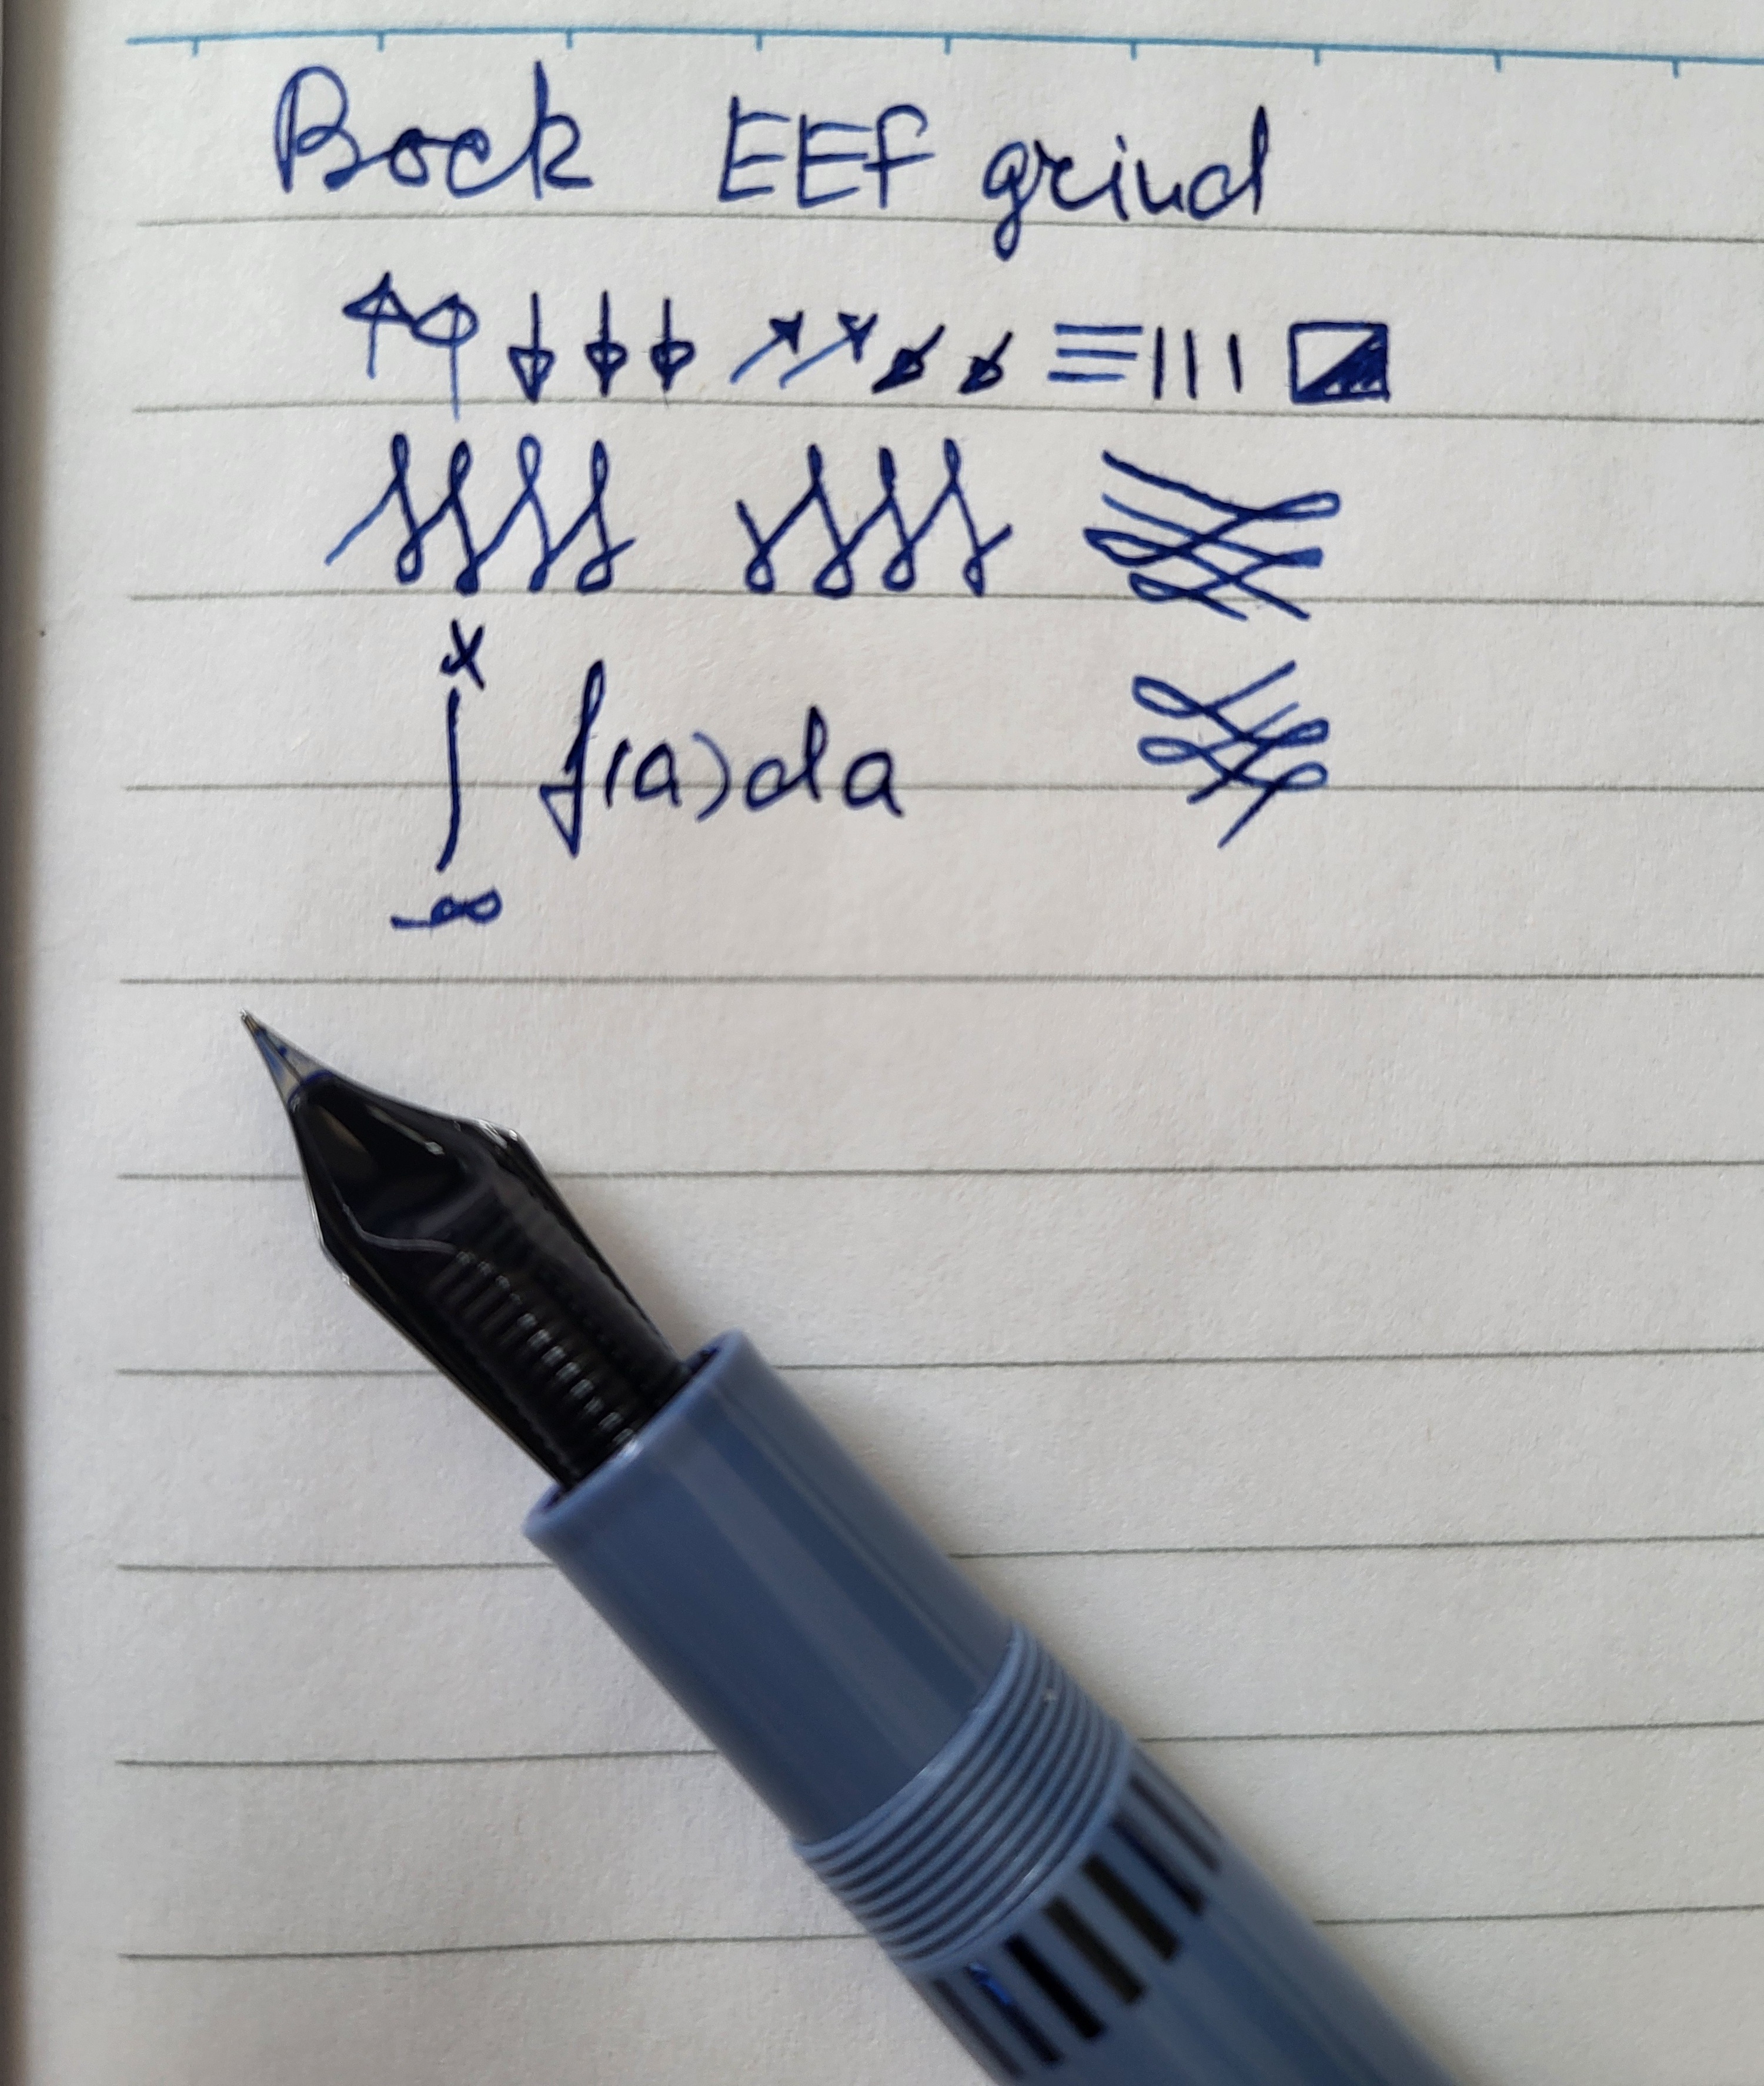 Bock EEF grind
↑↑ ↓↓↓ ↗↗↙↙ ≡ |||
x
∫ f(a)da
-∞